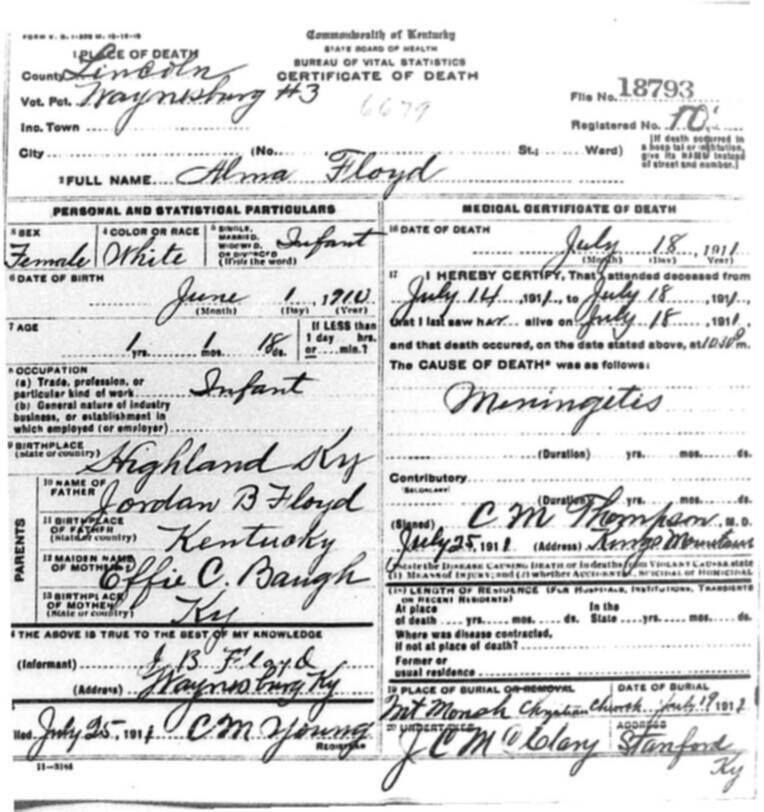 Commonwealth of Kentucky
STATE BOARD OF HEALTH
BUREAU OF VITAL STATISTICS
CERTIFICATE OF DEATH
1 PLACE OF DEATH
County Lincoln
Vot. Pct. Waynesburg #3
6679
File No. 18793
Inc. Town
Registered No.
City (No. St.; Ward)
(If death occurred in a hospital or institution, give its NAME instead of street and number.)
2 FULL NAME Alma Floyd
PERSONAL AND STATISTICAL PARTICULARS
3 SEX Female
4 COLOR OR RACE White
5 SINGLE, MARRIED, WIDOWED, OR DIVORCED (Write the word) Infant
6 DATE OF BIRTH
June 1, 1910
(Month) (Day) (Year)
7 AGE
1 yrs. 1 mos. 18 ds.
If LESS than 1 day hrs. or min.?
8 OCCUPATION
(a) Trade, profession, or particular kind of work Infant
(b) General nature of industry business, or establishment in which employed (or employer)
9 BIRTHPLACE (State or country) Highland Ky
PARENTS
10 NAME OF FATHER Jordan B Floyd
11 BIRTHPLACE OF FATHER (State or country) Kentucky
12 MAIDEN NAME OF MOTHER Effie C. Baugh
13 BIRTHPLACE OF MOTHER (State or country) Ky
THE ABOVE IS TRUE TO THE BEST OF MY KNOWLEDGE
(Informant) J B Floyd
(Address) Waynesburg Ky
Filed July 25, 1911 C M Young
REGISTRAR
11-3184
MEDICAL CERTIFICATE OF DEATH
16 DATE OF DEATH
July 18, 1911
(Month) (Day) (Year)
17 I HEREBY CERTIFY, That I attended deceased from
July 14, 1911, to July 18, 1911,
that I last saw her alive on July 18, 1911,
and that death occured, on the date stated above, at 1030 P m.
The CAUSE OF DEATH* was as follows:
Meningetis
(Duration) yrs. mos. ds.
Contributory
(SECONDARY)
(Duration) yrs. mos. ds.
(Signed) C M Thompson, M. D.
July 25, 1911 (Address) Kings Mountain
State the DISEASE CAUSING DEATH or in deaths from VIOLENT CAUSES state
(1) MEANS OF INJURY; and (2) whether ACCIDENTAL, SUICIDAL or HOMICIDAL
LENGTH OF RESIDENCE (FOR HOSPITALS, INSTITUTIONS, TRANSIENTS OR RECENT RESIDENTS)
At place of death yrs. mos. ds. In the State yrs. mos. ds.
Where was disease contracted,
if not at place of death?
Former or
usual residence
19 PLACE OF BURIAL OR REMOVAL DATE OF BURIAL
Mt Moriah Christian Church July 19 1911
20 UNDERTAKER ADDRESS
J C McClary Stanford
Ky